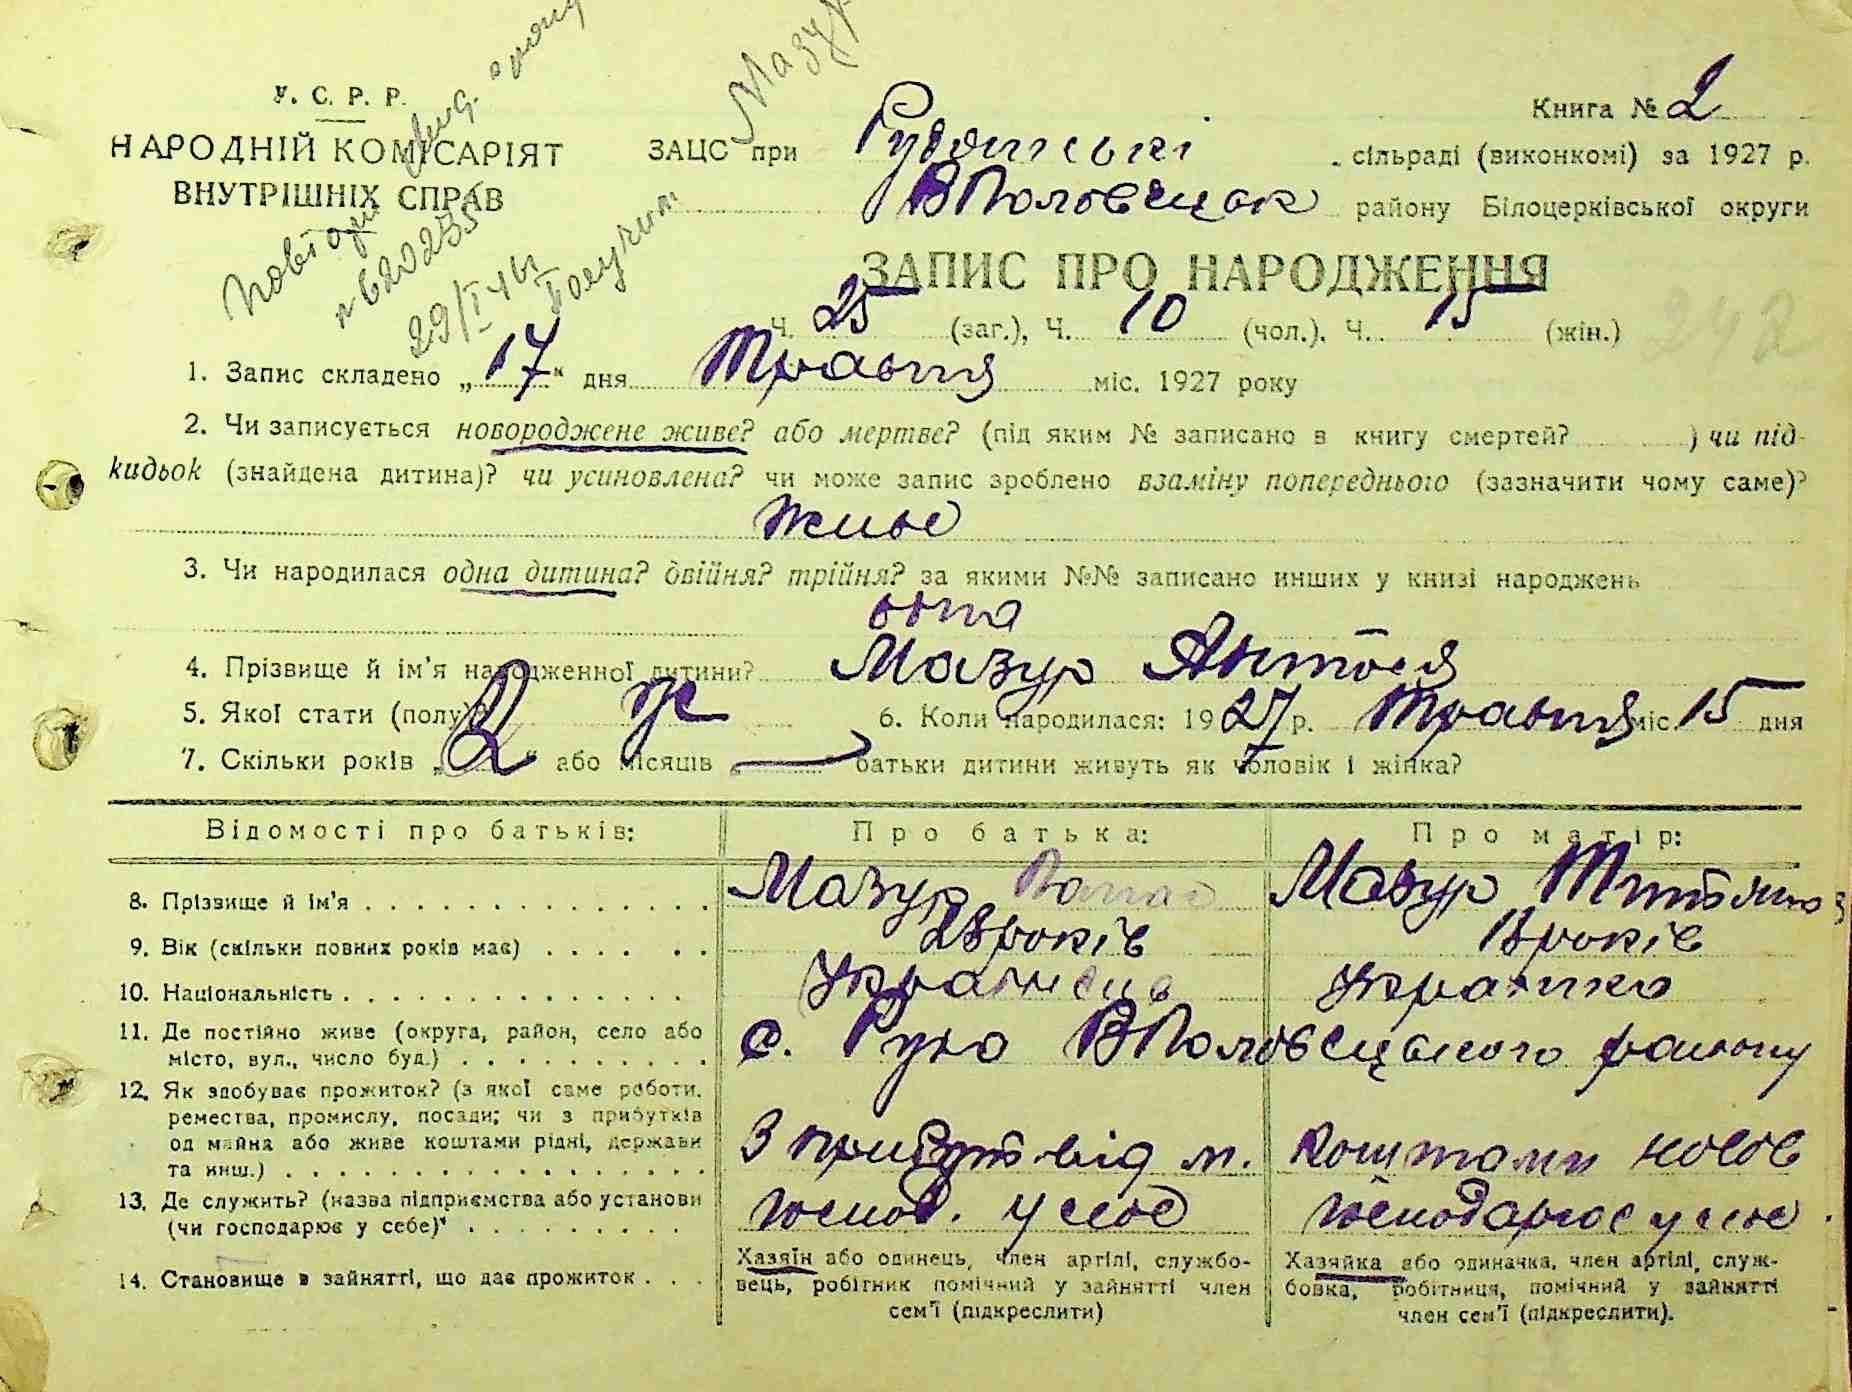 У. С. Р. Р.
НАРОДНІЙ КОМІСАРІЯТ
ВНУТРІШНІХ СПРАВ
Мазур
Книга № 2
ЗАЦС при Рудянські сільраді (виконкомі) за 1927 р.
ВПоловецьк району Білоцерківської округи
№ 620235
Получил
ЗАПИС ПРО НАРОДЖЕННЯ
Ч. 25 (заг.), Ч. 10 (чол.), Ч. 15 (жін.)
1. Запис складено „17“ дня Травня міс. 1927 року
2. Чи записується новороджене живе? або мертве? (під яким № записано в книгу смертей? ) чи під-
кидьок (знайдена дитина)? чи усиновлена? чи може запис зроблено взаміну попереднього (зазначити чому саме)?
живе
3. Чи народилася одна дитина? двійня? трійня? за якими №№ записано инших у книзі народжень
одна
4. Прізвище й ім'я народженної дитини? Мазур Антося
5. Якої стати (полу)? ж 6. Коли народилася: 1927 р. Травня міс. 15 дня
7. Скільки років „2“ або місяців „—“ батьки дитини живуть як чоловік і жінка?
Відомості про батьків: Про батька: Про матір:
8. Прізвище й ім'я Мазур Панас Мазур Титяна
9. Вік (скільки повних років має) років років
10. Національність Українець Українка
11. Де постійно живе (округа, район, село або
місто, вул., число буд.) с. Руда ВПоловецького району
12. Як здобуває прожиток? (з якої саме роботи,
ремества, промислу, посади; чи з прибутків
од майна або живе коштами рідні, держави
та инш.) З прибутк від м. Коштами чолов
13. Де служить? (назва підприємства або установи
(чи господарює у себе) господ. у себе господарює у себе
14. Становище в зайнятті, що дає прожиток
Хазяїн або одинець, член артілі, службо-
вець, робітник помічний у зайнятті член
сем'ї (підкреслити)
Хазяйка або одиначка, член артілі, служ-
бовка, робітниця, помічний у зайнятті
член сем'ї (підкреслити).